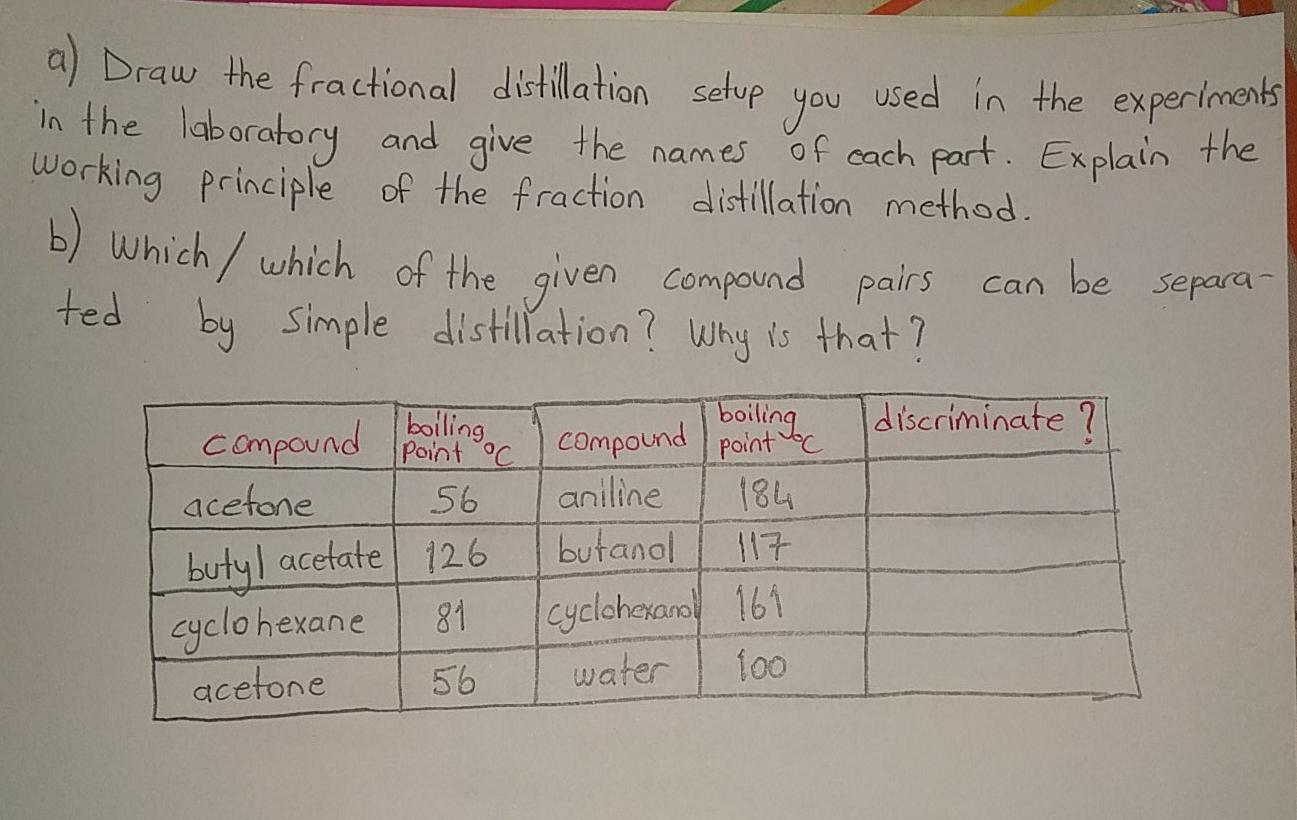 a) Draw the fractional distillation setup you used in the experiments
in the laboratory and give the names of each part. Explain the
working principle of the fraction distillation method.
b) Which/which of the given compound pairs can be separa-
ted by simple distillation? Why is that?
compound boiling point °C compound boiling point °C discriminate?
acetone 56 aniline 184
butyl acetate 126 butanol 117
cyclohexane 81 cyclohexanol 161
acetone 56 water 100